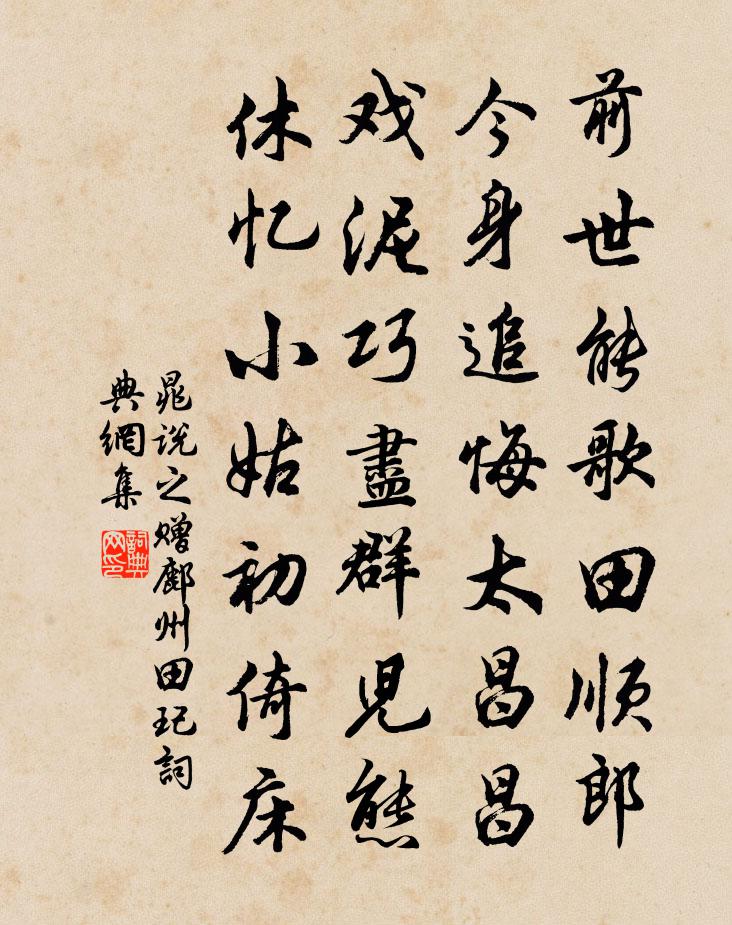 前世能歌田顺郎
今身追悔太昌昌
戏泥巧盡群児態
休忆小姑初倚床
晁说之赠鄜州田玘詞
典網集
詞典网印